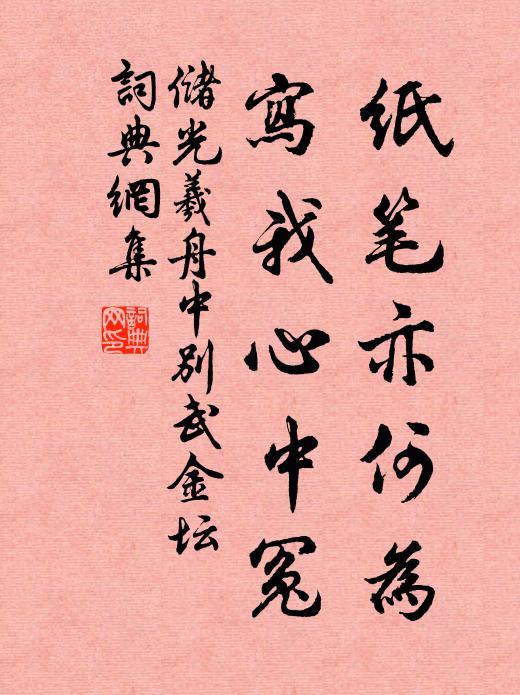 纸笔亦何为
寫我心中冤
储光羲舟中别武金坛
詞典網集
詞典
网印